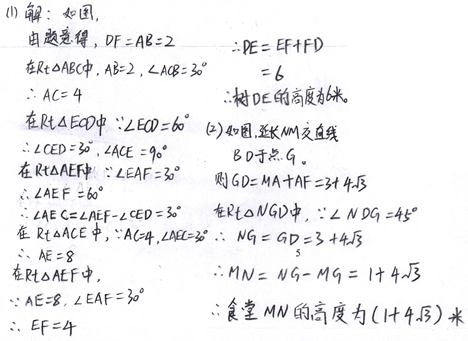 (1) 解：如图，
由题意得，DF=AB=2
在Rt△ABC中，AB=2，∠ACB=30°
∴ AC=4
在Rt△ECD中 ∵∠ECD=60°
∴∠CED=30°，∠ACE=90°
在Rt△AEF中 ∵∠EAF=30°
∴∠AEF=60°
∴∠AEC=∠AEF-∠CED=30°
在 Rt△ACE中，∵AC=4，∠AEC=30°
∴ AE=8
在Rt△AEF中，
∵ AE=8，∠EAF=30°
∴ EF=4
∴DE=EF+FD
=6
∴树DE的高度为6米。
(2)如图，延长NM交直线
BD于点G。
则GD=MA+AF=3+4√3
在Rt△NGD中，∵∠NDG=45°
∴ NG=GD=3+4√3
∴MN=NG-MG=1+4√3
∴食堂MN的高度为(1+4√3)米